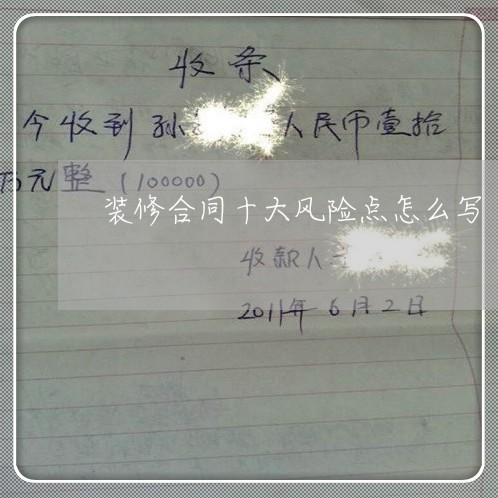 收条
今收到孙 人民币壹拾
万元整(100000)
装修合同十大风险点怎么写
收款人
2011年6月2日